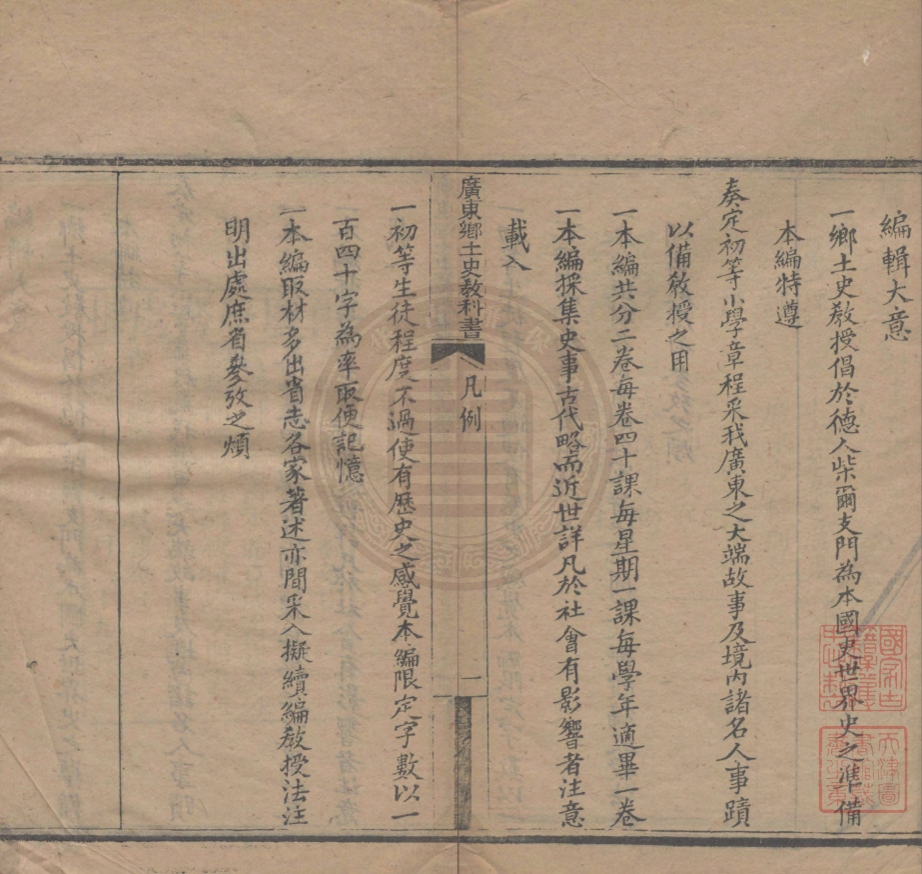 編輯大意
一鄉土史教授倡於德人柴爾支門為本國史世界史之準備
本編特遵
奏定初等小學章程采我廣東之大端故事及境內諸名人事蹟
以備教授之用
一本編共分二卷每卷四十課每星期一課每學年適畢一卷
一本編採集史事古代略而近世詳凡於社會有影響者注意
載入
廣東鄉土史教科書
凡例
一
一初等生徒程度不過使有歷史之感覺本編限定字數以一
百四十字為率取便記憶
一本編取材多出省志各家著述亦間采入擬續編教授法注
明出處庶省參攷之煩